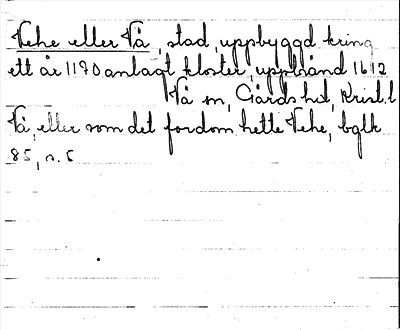 Vehe eller Vä, stad, uppbyggd kring
ett år 1170 anlagt kloster, uppbränd 1612
Vä sn, Gärds hd, Krist. l
Vä, eller som det fordom hette Vehe, bglk
85, n. 5